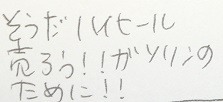 そうだハイヒール
売ろう!!ガソリンの
ために!!